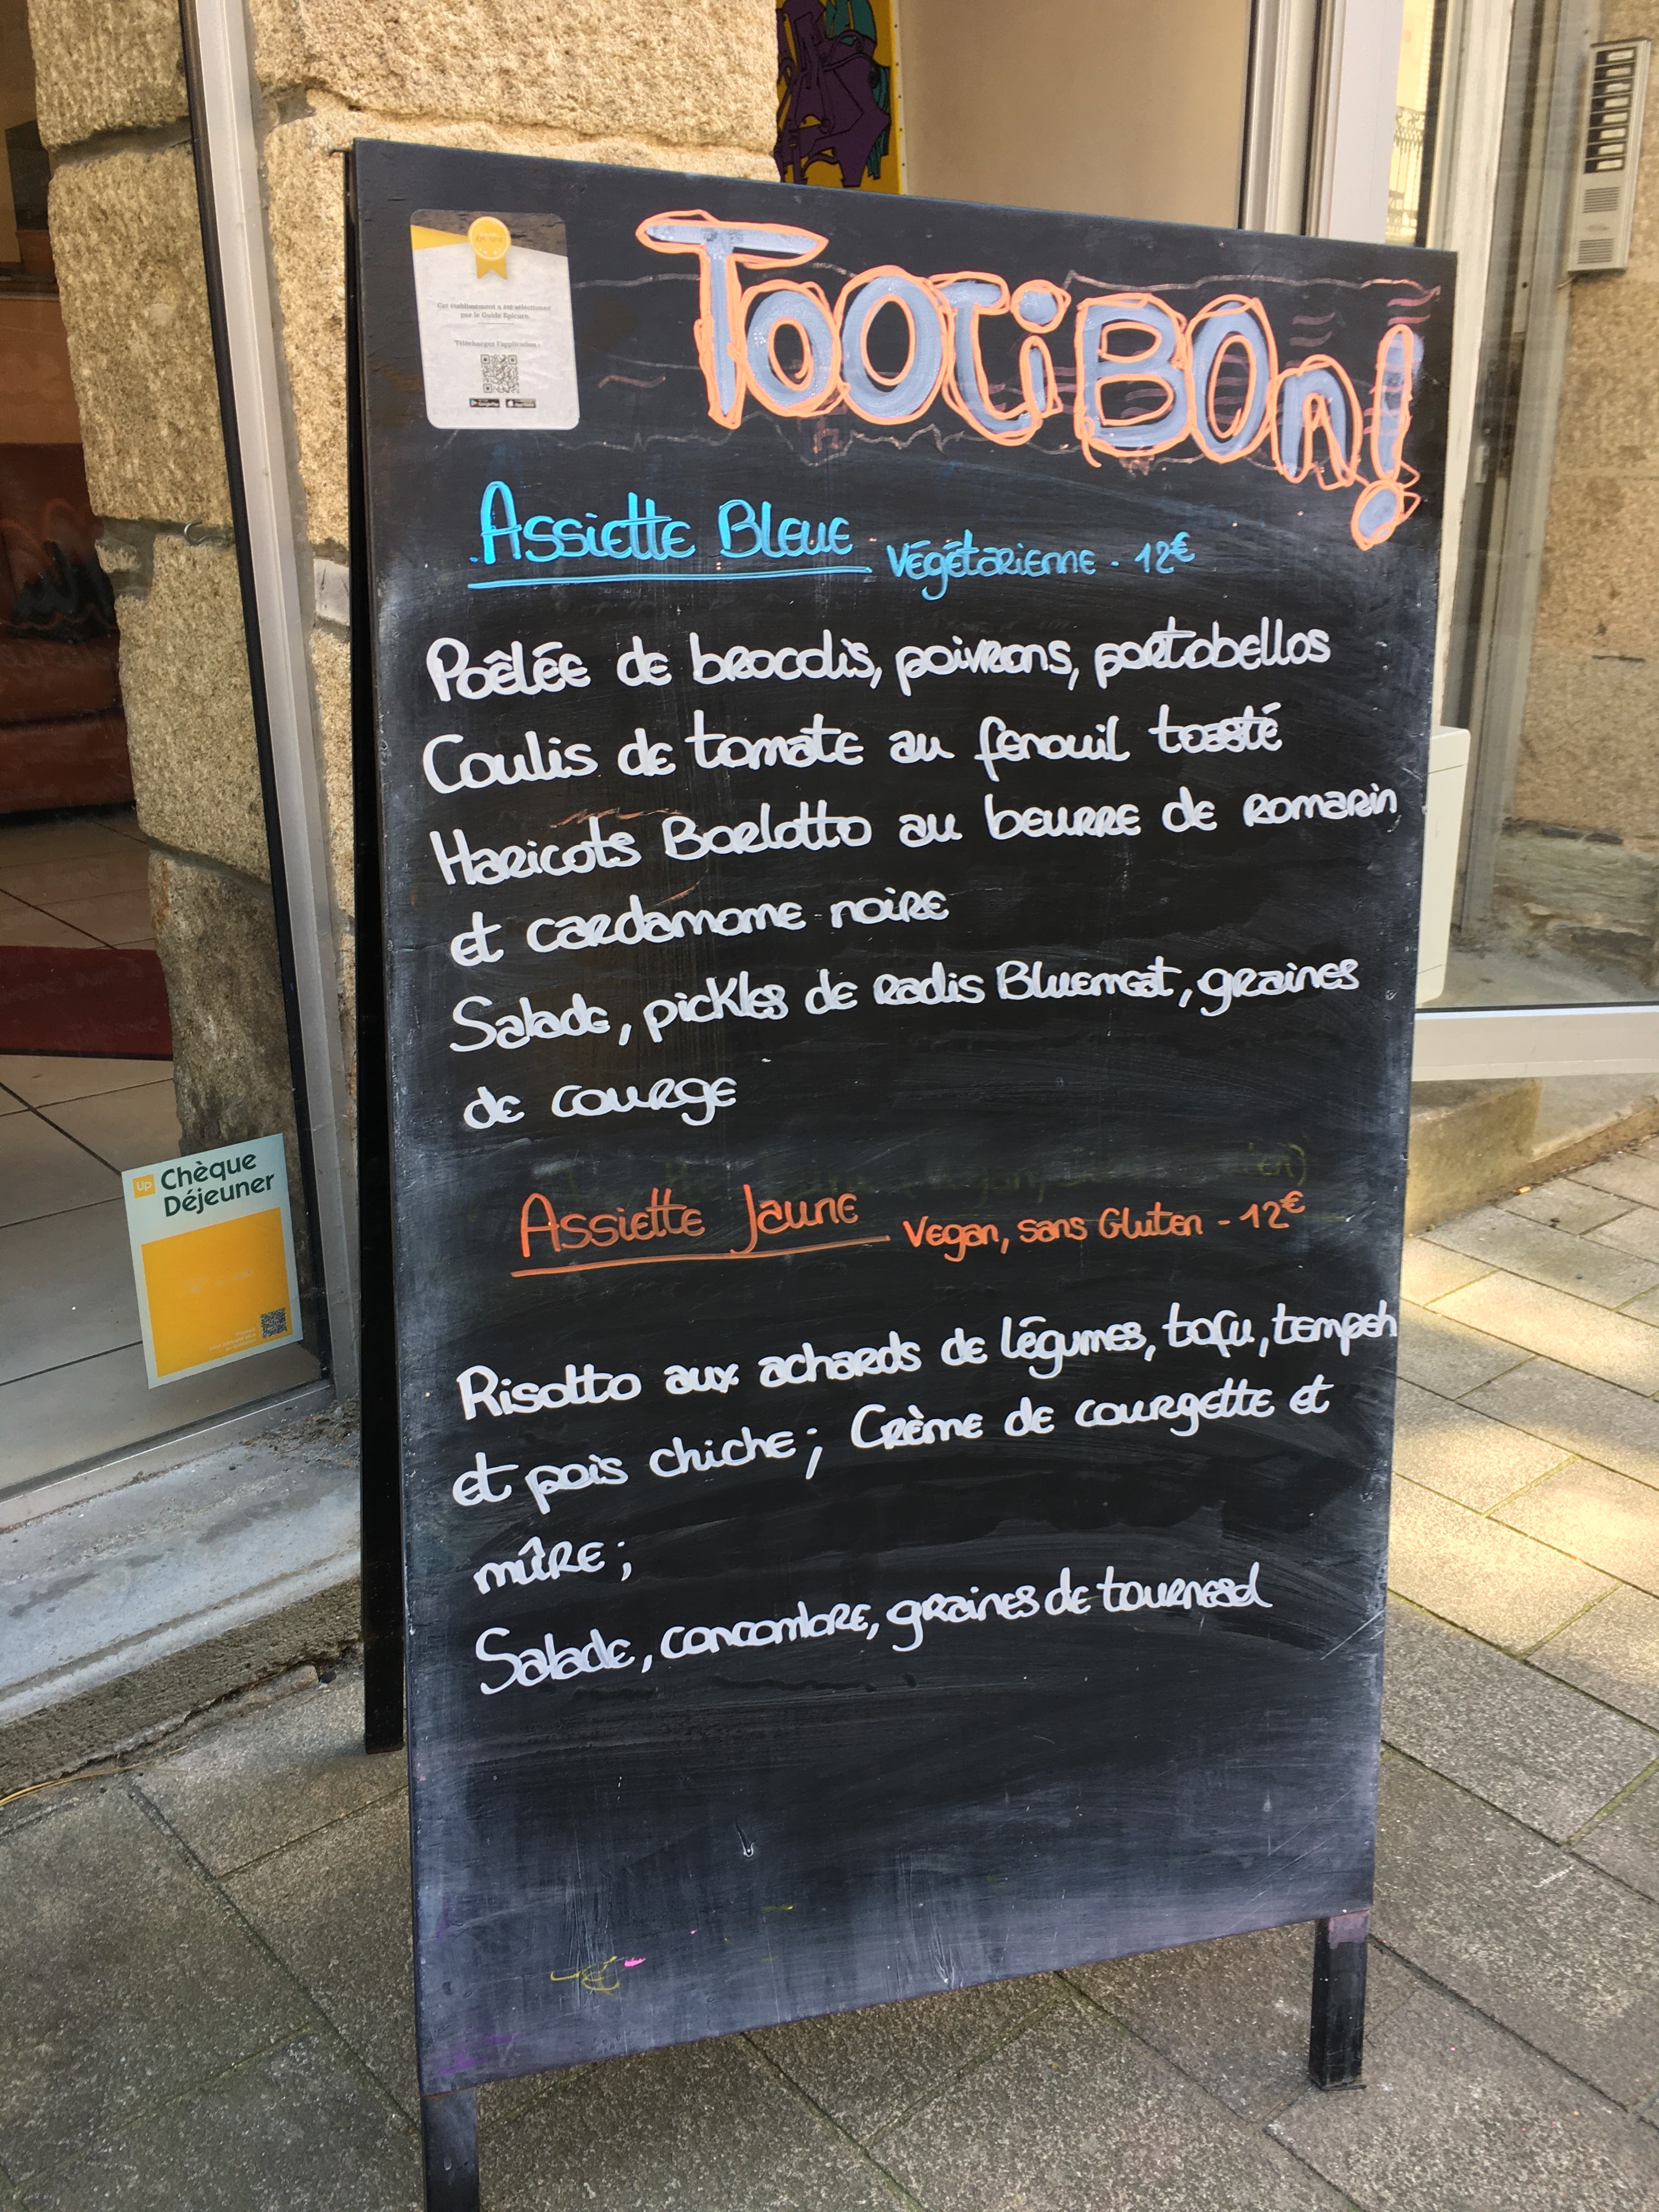 TooTiBOn!
Cet établissement a été sélectionné
par le Guide Epicure.
Télécharger l'application :
Assiette Bleue Végétarienne - 12€
Poêlée de brocolis, poivrons, portobellos
Coulis de tomate au fenouil toasté
Haricots Borlotto au beurre de romarin
et cardamome noire
Salade, pickles de radis Bluemeat, graines
de courge
Assiette Jaune Vegan, sans Gluten - 12€
Risotto aux achards de légumes, tofu, tempeh
et pois chiche; Crème de courgette et
mûre;
Salade, concombre, graines de tournesol
Up Chèque
Déjeuner